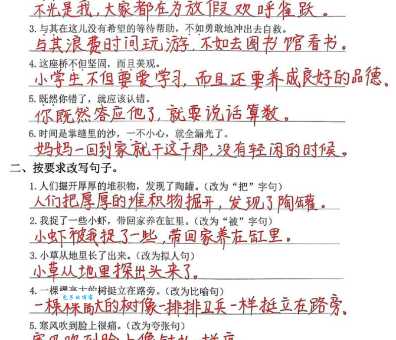 不光是我,大家都在为放假欢呼雀跃。
3.与其在这儿没有希望的等待帮助,不如勇敢地冲出去自救。
与其浪费时间玩游,不如去图书馆看书。
4.这座桥不但坚固,而且美观。
小学生不但要爱学习,而且还要养成良好的品德。
5.既然你错了,就应该认错。
你既然答应他了,就要说话算数。
6.时间是掌缝里的沙,一不小心,就全漏光了。
妈妈一回到家就干这干那,没有轻闲的时候。
二、按要求改写句子。
1.人们掘开厚厚的堆积物,发现了陶罐。(改为“把”字句)
人们把厚厚的堆积物掘开,发现了陶罐。
2.我捉了一些小虾,带回家养在缸里。(改为“被”字句)
小虾被我捉了一些,带回家养在缸里。
3.小草从地里长了出来。(改为拟人句)
小草从地里探出头来了。
4.一棵棵高大的树挺立在路旁。(改为比喻句)
一棵棵高大的树像一排排卫兵一样挺立在路旁。
5.寒风吹到脸上很痛。(改为夸张句)